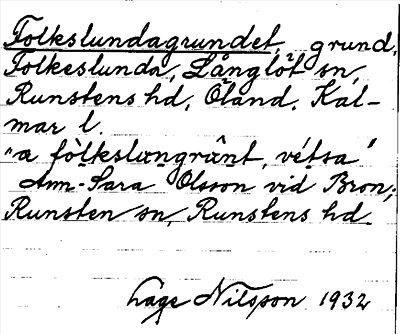 Folkslundagrundet, grund,
Folkeslunda, Långlöt sn,
Runstens hd, Öland, Kal-
mar l.
"a fòlkslungrùnt, vétsa"
Ann-Sara Olsson vid Bron;
Runsten sn, Runstens hd
Låge Nilsson 1932